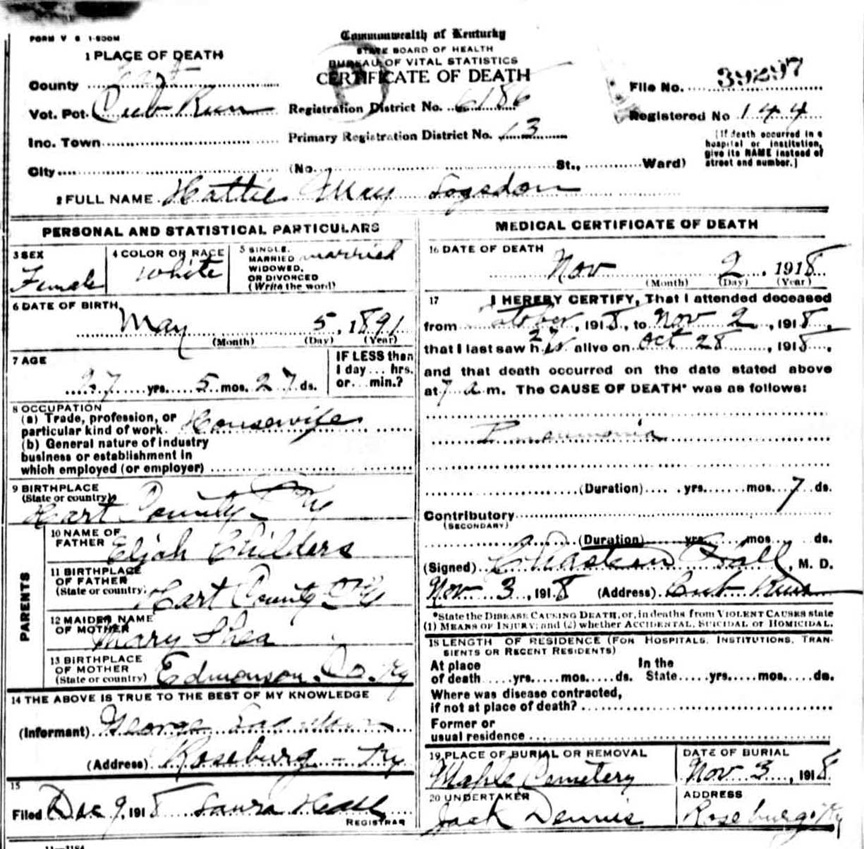 FORM V S 1-500M
Commonwealth of Kentucky
STATE BOARD OF HEALTH
BUREAU OF VITAL STATISTICS
CERTIFICATE OF DEATH
1 PLACE OF DEATH
County
Vot. Pct Cub Run
Inc. Town
City
Registration District No. 6186
Primary Registration District No. 13
(No. St., Ward)
File No. 39297
Registered No 144
[If death occurred in a
hospital or institution,
give its NAME instead of
street and number.]
2 FULL NAME Hattie May Logsdon
PERSONAL AND STATISTICAL PARTICULARS
3 SEX
Female
4 COLOR OR RACE
White
5 SINGLE,
MARRIED
WIDOWED,
OR DIVORCED
(Write the word)
married
6 DATE OF BIRTH
May 5, 1891
(Month) (Day) (Year)
7 AGE
27 yrs. 5 mos. 27 ds.
IF LESS than
1 day... hrs.
or... min.?
8 OCCUPATION
(a) Trade, profession, or
particular kind of work. Housewife
(b) General nature of industry
business or establishment in
which employed (or employer)
9 BIRTHPLACE
(State or country)
Hart County Ky
PARENTS
10 NAME OF
FATHER
Elijah Childers
11 BIRTHPLACE
OF FATHER
(State or country)
Hart County Ky
12 MAIDEN NAME
OF MOTHER
Mary Shea
13 BIRTHPLACE
OF MOTHER
(State or country)
Edmonson Co. Ky
14 THE ABOVE IS TRUE TO THE BEST OF MY KNOWLEDGE
(Informant) George
(Address) Roseburg - Ky
15
Filed Dec 9, 1918 Laura
REGISTRAR
11-3184
MEDICAL CERTIFICATE OF DEATH
16 DATE OF DEATH
Nov 2, 1918
(Month) (Day) (Year)
17 I HEREBY CERTIFY, That I attended deceased
from October, 1918, to Nov 2, 1918,
that I last saw her alive on Oct 28, 1918,
and that death occurred on the date stated above
at 7 a m. The CAUSE OF DEATH* was as follows:
Pneumonia
(Duration) yrs. mos. 7 ds.
Contributory
(SECONDARY)
(Duration) yrs. mos. ds.
(Signed) Hall, M. D.
Nov 3, 1918 (Address) Cub Run
*State the DISEASE CAUSING DEATH, or, in deaths from VIOLENT CAUSES state
(1) MEANS OF INJURY; and (2) whether ACCIDENTAL, SUICIDAL or HOMICIDAL.
18 LENGTH OF RESIDENCE (FOR HOSPITALS, INSTITUTIONS, TRAN-
SIENTS OR RECENT RESIDENTS)
At place
of death yrs. mos. ds.
In the
State yrs. mos. ds.
Where was disease contracted,
if not at place of death?
Former or
usual residence
19 PLACE OF BURIAL OR REMOVAL
Mahle Cemetery
DATE OF BURIAL
Nov 3, 1918
20 UNDERTAKER
Jack Dennis
ADDRESS
Roseburg Ky